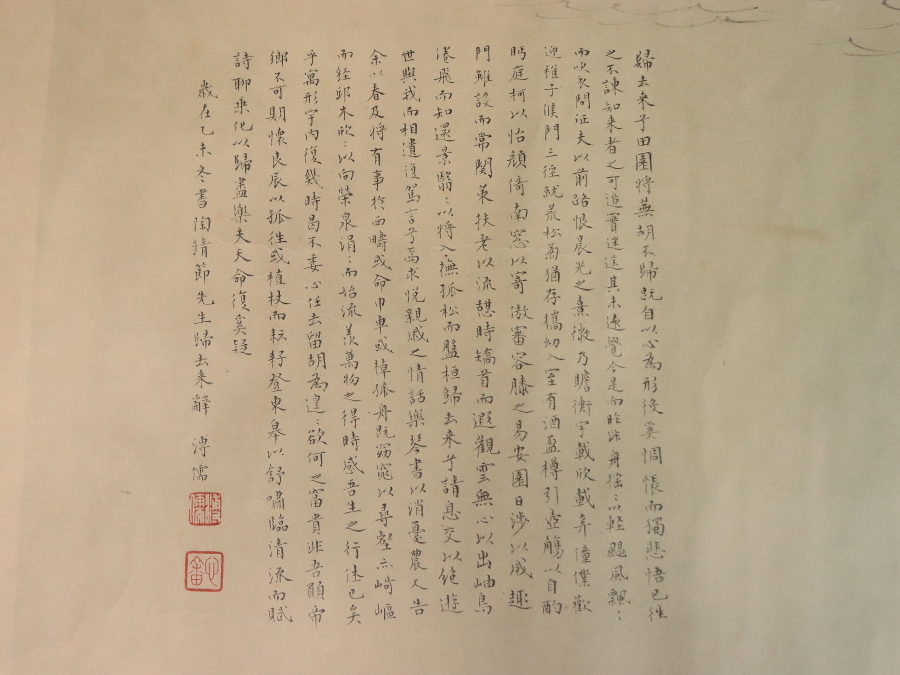 歸去来兮田園將蕪胡不歸既自以心為形役奚惆悵而獨悲悟已往
之不諫知来者之可追實迷途其未遠覺今是而昨非舟搖〻以輕颺風飄〻
而吹衣問征夫以前路恨晨光之熹微乃瞻衡宇載欣載奔僮僕歡
迎稚子候門三徑就荒松菊猶存攜幼入室有酒盈樽引壺觴以自酌
眄庭柯以怡顏倚南窓以寄傲審容膝之易安園日涉以成趣
門雖設而常關策扶老以流憩時矯首而遐觀雲無心以出岫鳥
倦飛而知還景翳〻以將入撫孤松而盤桓歸去来兮請息交以絶遊
世與我而相遺復駕言兮焉求悦親戚之情話樂琴書以消憂農人告
余以春及將有事於西疇或命巾車或棹孤舟既窈窕以尋壑亦崎嶇
而經邱木欣〻以向榮泉涓〻而始流羨萬物之得時感吾生之行休已矣
乎寓形宇内復幾時曷不委心任去留胡為遑〻欲何之富貴非吾願帝
鄉不可期懷良辰以孤往或植杖而耘耔登東皋以舒嘯臨清流而賦
詩聊乘化以歸盡樂夫天命復奚疑
歲在乙未冬書陶靖節先生歸去来辭 溥儒
溥儒
心畬